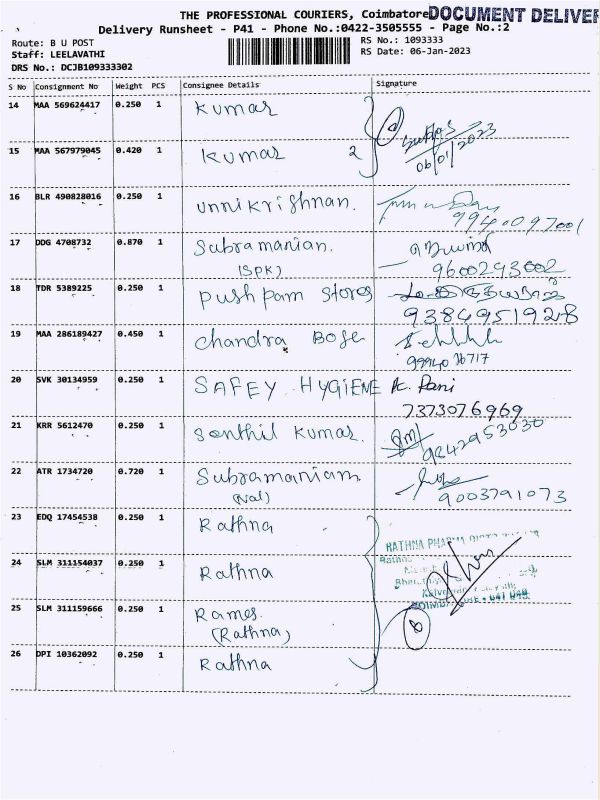 THE PROFESSIONAL COURIERS, Coimbatore DOCUMENT DELIVER
Delivery Runsheet - P41 - Phone No.:0422-3505555 - Page No.:2
Route: B U POST RS No.: 1093333
Staff: LEELAVATHI RS Date: 06-Jan-2023
DRS No.: DCJB109333302
S No Consignment No Weight PCS Consignee Details Signature
14 MAA 569624417 0.250 1 Kumar
06/01/2023
15 MAA 567979045 0.420 1 Kumar 2
16 BLR 490828016 0.250 1 Unnikrishnan.
9940097001
17 DDG 4708732 0.870 1 Subramanian.
(SPK) 9600293002
18 TDR 5389225 0.250 1 Pushpam Stores
9384951928
19 MAA 286189427 0.450 1 Chandra Bose
20 SVK 30134959 0.250 1 SAFEY HYGIENE K. Rani
7373076969
21 KRR 5612470 0.250 1 Senthil Kumar.
9842953030
22 ATR 1734720 0.720 1 Subramaniam
(Val) 9003791073
23 EDQ 17454538 0.250 1 Rathna
RATHNA PHARMA
24 SLM 311154037 0.250 1 Rathna
25 SLM 311159666 0.250 1 Rames.
(Rathna)
26 DPI 10362092 0.250 1 Rathna